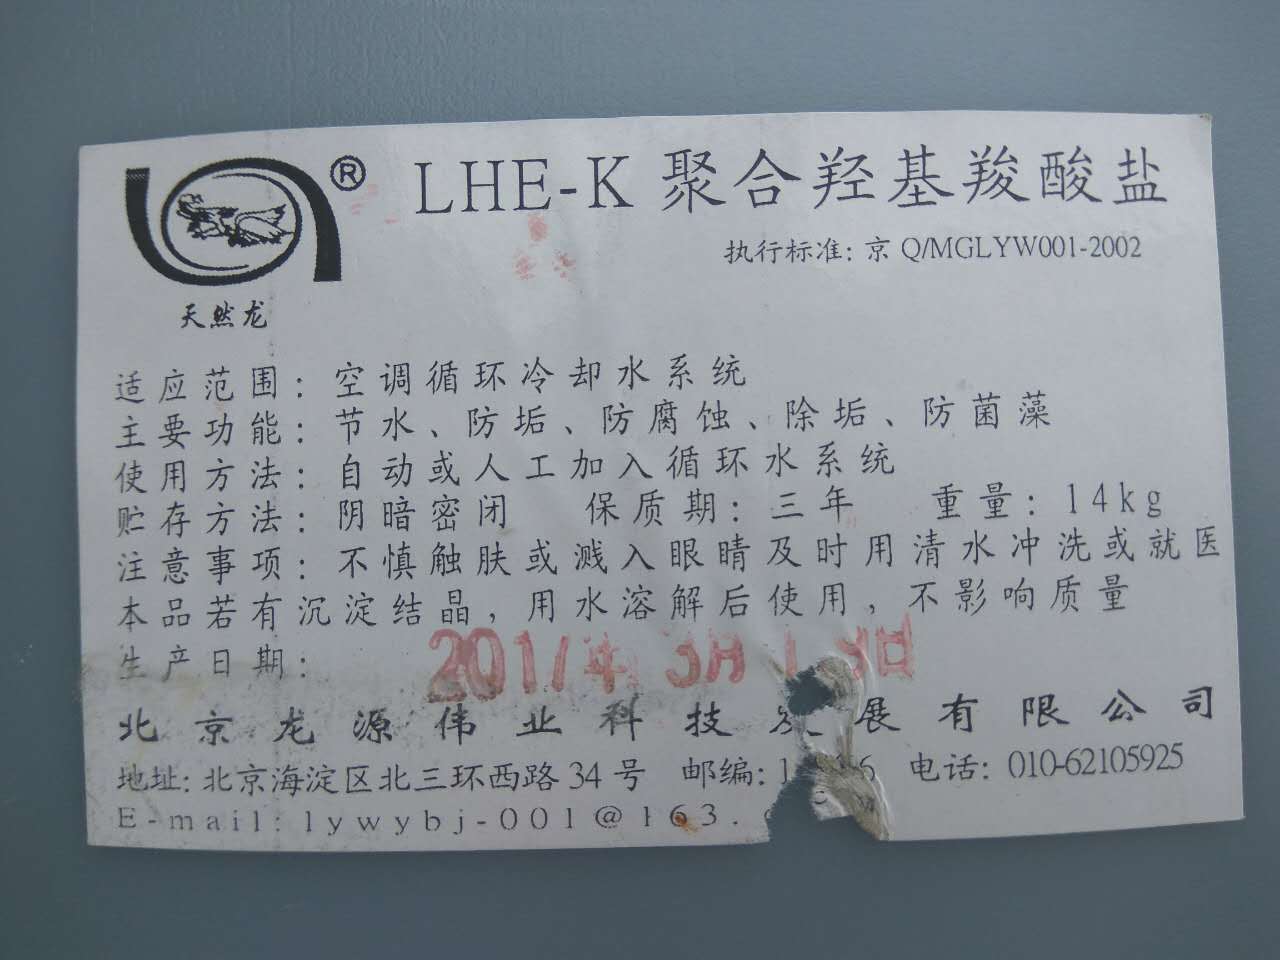 LHE-K 聚合羟基羧酸盐
®
执行标准: 京 Q/MGLYW001-2002
天然龙
适应范围: 空调循环冷却水系统
主要功能: 节水、防垢、防腐蚀、除垢、防菌藻
使用方法: 自动或人工加入循环水系统
贮存方法: 阴暗密闭 保质期: 三年 重量: 14kg
注意事项: 不慎触肤或溅入眼睛及时用清水冲洗或就医
本品若有沉淀结晶, 用水溶解后使用, 不影响质量
生产日期: 201 年 3月1 日
北京龙源伟业科技发展有限公司
地址: 北京海淀区北三环西路 34 号 邮编: 1 6 电话: 010-62105925
E-mail: lywybj-001@163.